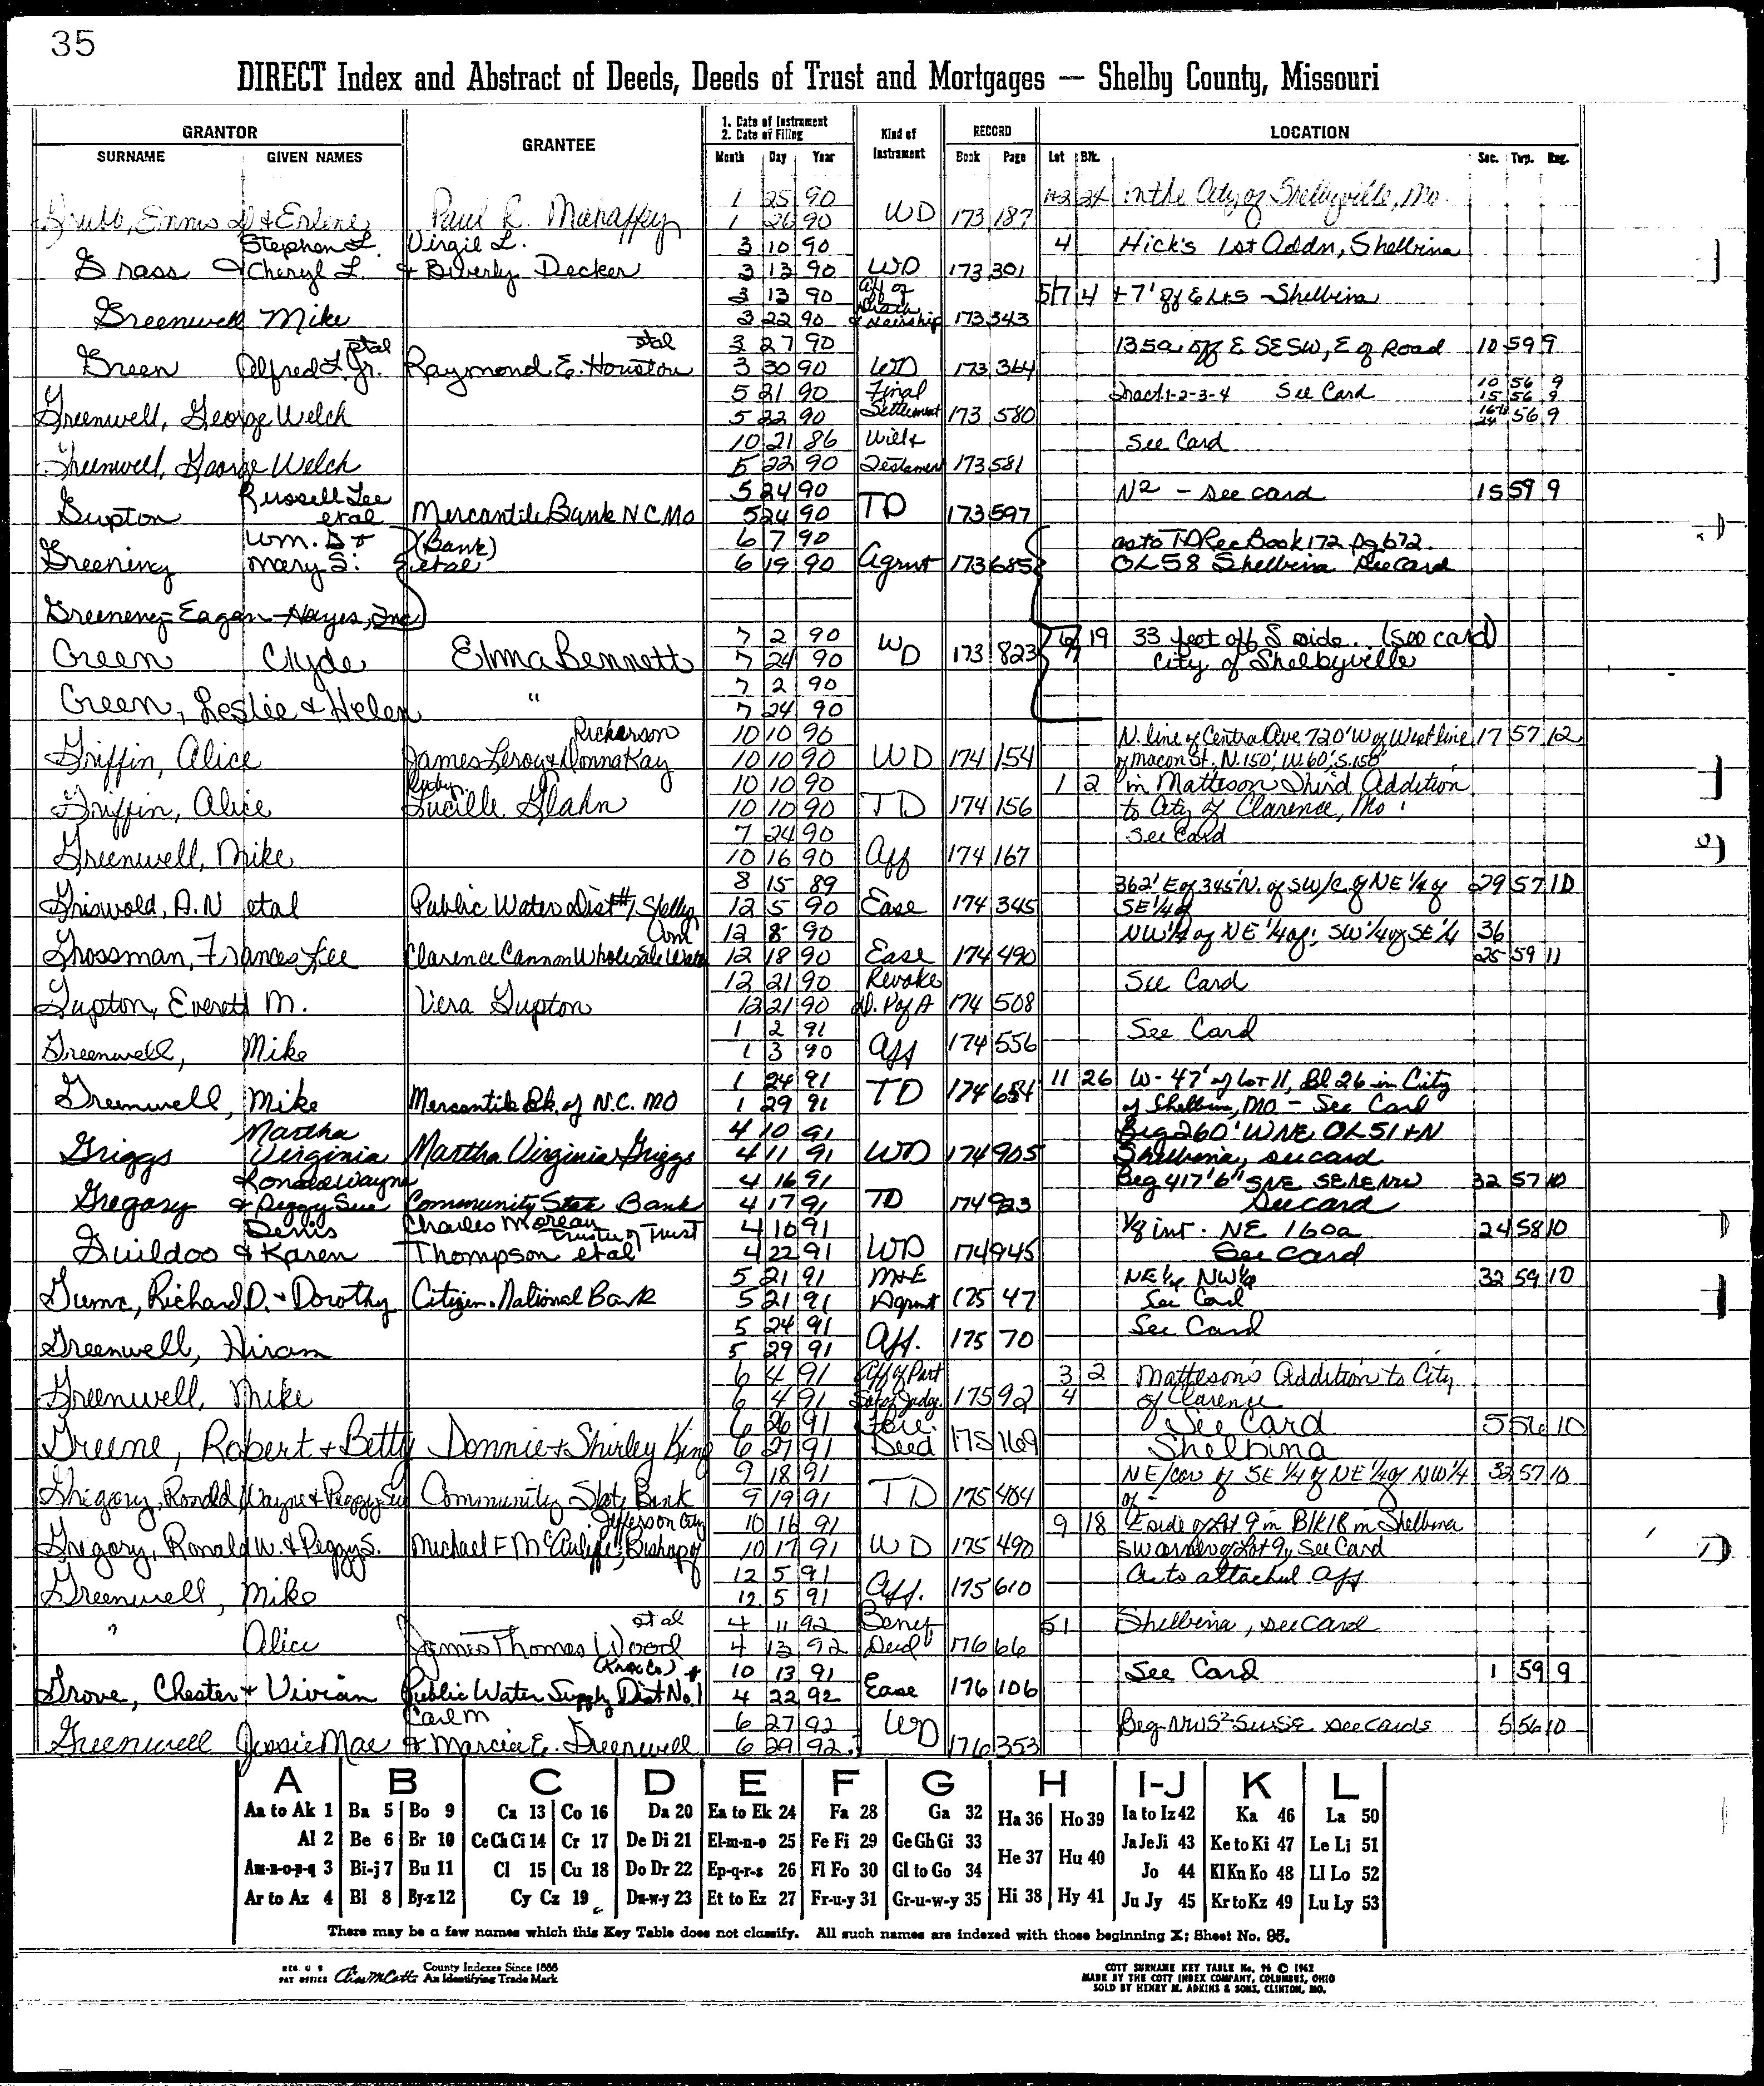 35
DIRECT Index and Abstract of Deeds, Deeds of Trust and Mortgages — Shelby County, Missouri
GRANTOR GRANTEE 1. Date of Instrument 2. Date of Filing Kind of Instrument RECORD LOCATION
SURNAME GIVEN NAMES Month Day Year Book Page Lot Blk. Sec. Twp. Rng.
1 25 90 1+2 24 in the City of Shelbyville, Mo.
Grubb, Ennis D & Erlene Paul R. Mahaffey 1 26 90 WD 173 187
Stephen L. Virgil L. 3 10 90 4 Hick's 1st Addn, Shelbina
Grass & Cheryl L. & Beverly Decker 3 13 90 WD 173 301
3 13 90 Aff of Death 5/7 4 +7' of E Lt 5 - Shelbina
Greenwell Mike 3 22 90 & Heirship 173 343
etal etal 3 27 90 135a off E SESW, E of Road 10 59 9
Green Alfred L. Jr. Raymond E. Houston 3 30 90 WD 173 364
5 21 90 Final Tract 1-2-3-4 See Card 10 56 9
15 56 9
Greenwell, George Welch 5 22 90 Settlement 173 580 56 9
10 21 86 Will & See Card
Greenwell, George Welch 5 22 90 Testament 173 581
Russell Lee 5 24 90 N2 - see card 15 59 9
Gupton etal Mercantile Bank NC Mo 5 24 90 TD 173 597
Wm. D + (Bank) 6 7 90 as to TD Rec Book 172 pg 672
Greening Mary S. etal 6 19 90 Agrmt 173 685 OL 58 Shelbina See Card
Greening-Eagan-Hayes, Inc
7 2 90 WD 19 33 feet off S side. (see card)
Green Clyde Elma Bennett 7 24 90 173 823 City of Shelbyville
7 2 90
Green, Leslie & Helen " 7 24 90
Rickerson 10 10 90 N. line of Central Ave 720' W of West line 17 57 12
Griffin, Alice James Leroy & Donna Kay 10 10 90 WD 174 154 of Macon St, N. 150', W. 60', S. 150'
Ruby 10 10 90 1 2 in Matteson Third Addition
Griffin, Alice Lucille Glahn 10 10 90 TD 174 156 to City of Clarence, Mo.
7 24 90 See Card
Greenwell, Mike 10 16 90 Aff 174 167
8 15 89 362' E of 345' N. of SW/C of NE 1/4 of 29 57 10
Griswold, A.N etal Public Water Dist #1 Shelby 12 5 90 Ease 174 345 SE 1/4 of
Com 12 8 90 NW 1/4 of NE 1/4 of; SW 1/4 of SE 1/4 36
Grossman, Frances Lee Clarence Cannon Wholesale Water 12 18 90 Ease 174 490 25 59 11
12 21 90 Revoke See Card
Gupton, Everett M. Vera Gupton 12 21 90 D. P of A 174 508
1 2 91 See Card
Greenwell, Mike 1 3 90 Aff 174 556
1 24 91 11 26 W-47' of Lot 11, Bl 26 in City
Greenwell, Mike Mercantile Bk. of N.C. MO 1 29 91 TD 174 684 of Shelbina, MO - See Card
Martha 4 10 91 Beg 260' W NE OL 51 + N
Griggs Virginia Martha Virginia Griggs 4 11 91 WD 174 905 Shelbina, see card
Ronald Wayne 4 16 91 Beg 417'6" S NE SE NE NW 32 57 10
Gregory & Peggy Sue Community State Bank 4 17 91 TD 174 923 See card
Denis Charles Moreau Trustee of Trust 4 10 91 1/8 int. NE 160a 24 58 10
Guildoo & Karen Thompson etal 4 22 91 WD 174 945 See card
5 21 91 M&E NE 1/4 NW 1/4 32 59 10
Gumr, Richard D. + Dorothy Citizen. National Bank 5 21 91 Agrmt 175 47 See Card
5 24 91 See Card
Greenwell, Hiram 5 29 91 Aff. 175 70
6 4 91 Aff of Part 3 2 Matteson's Addition to City
Greenwell, Mike 6 4 91 Sat of Judg. 175 92 4 of Clarence
6 26 91 See Card 5 56 10
Greene, Robert + Betty Donnie + Shirley King 6 27 91 Deed 175 169 Shelbina
9 18 91 NE/cor of SE 1/4 of NE 1/4 of NW 1/4 32 57 10
Gregory, Ronald Wayne & Peggy Sue Community State Bank 9 19 91 TD 175 404 of -
Jefferson City 10 16 91 9 18 E side of Lot 9 in Blk 18 in Shelbina
Gregory, Ronald W. & Peggy S. Michael F McAuliffe, Bishop of 10 17 91 WD 175 490 SW corner of Lot 9, See Card
12 5 91 As to attached aff
Greenwell, Mike 12 5 91 Aff. 175 610
etal 4 11 92 Benef 51 Shelbina, see card
" Alice James Thomas Wood 4 13 92 Deed 176 66
(Knox Co.) + 10 13 91 See Card 1 59 9
Grove, Chester & Vivian Public Water Supply Dist No. 1 4 22 92 Ease 176 106
Carl M 6 27 92 Beg NW S2 SWSE see cards 5 56 10
Greenwell Jessie Mae & Marcia E. Greenwell 6 29 92 WD 176 353
A B C D E F G H I-J K L
Aa to Ak 1 Ba 5 Bo 9 Ca 13 Co 16 Da 20 Ea to Ek 24 Fa 28 Ga 32 Ha 36 Ho 39 Ia to Iz 42 Ka 46 La 50
Al 2 Be 6 Br 10 Ce Ch Ci 14 Cr 17 De Di 21 El-m-n-o 25 Fe Fi 29 Ge Gh Gi 33 He 37 Hu 40 Ja Je Ji 43 Ke to Ki 47 Le Li 51
Am-n-o-p-q 3 Bi-j 7 Bu 11 Cl 15 Cu 18 Do Dr 22 Ep-q-r-s 26 Fl Fo 30 Gl to Go 34 Jo 44 Kl Kn Ko 48 Ll Lo 52
Ar to Az 4 Bl 8 By-z 12 Cy Cz 19 Du-w-y 23 Et to Ez 27 Fr-u-y 31 Gr-u-w-y 35 Hi 38 Hy 41 Ju Jy 45 Kr to Kz 49 Lu Ly 53
There may be a few names which this Key Table does not classify. All such names are indexed with those beginning X; Sheet No. 95.
REG. U S PAT OFFICE County Indexes Since 1888 An Identifying Trade Mark
COTT SURNAME KEY TABLE No. 96 © 1962
MADE BY THE COTT INDEX COMPANY, COLUMBUS, OHIO
SOLD BY HENRY M. ADKINS & SONS, CLINTON, MO.